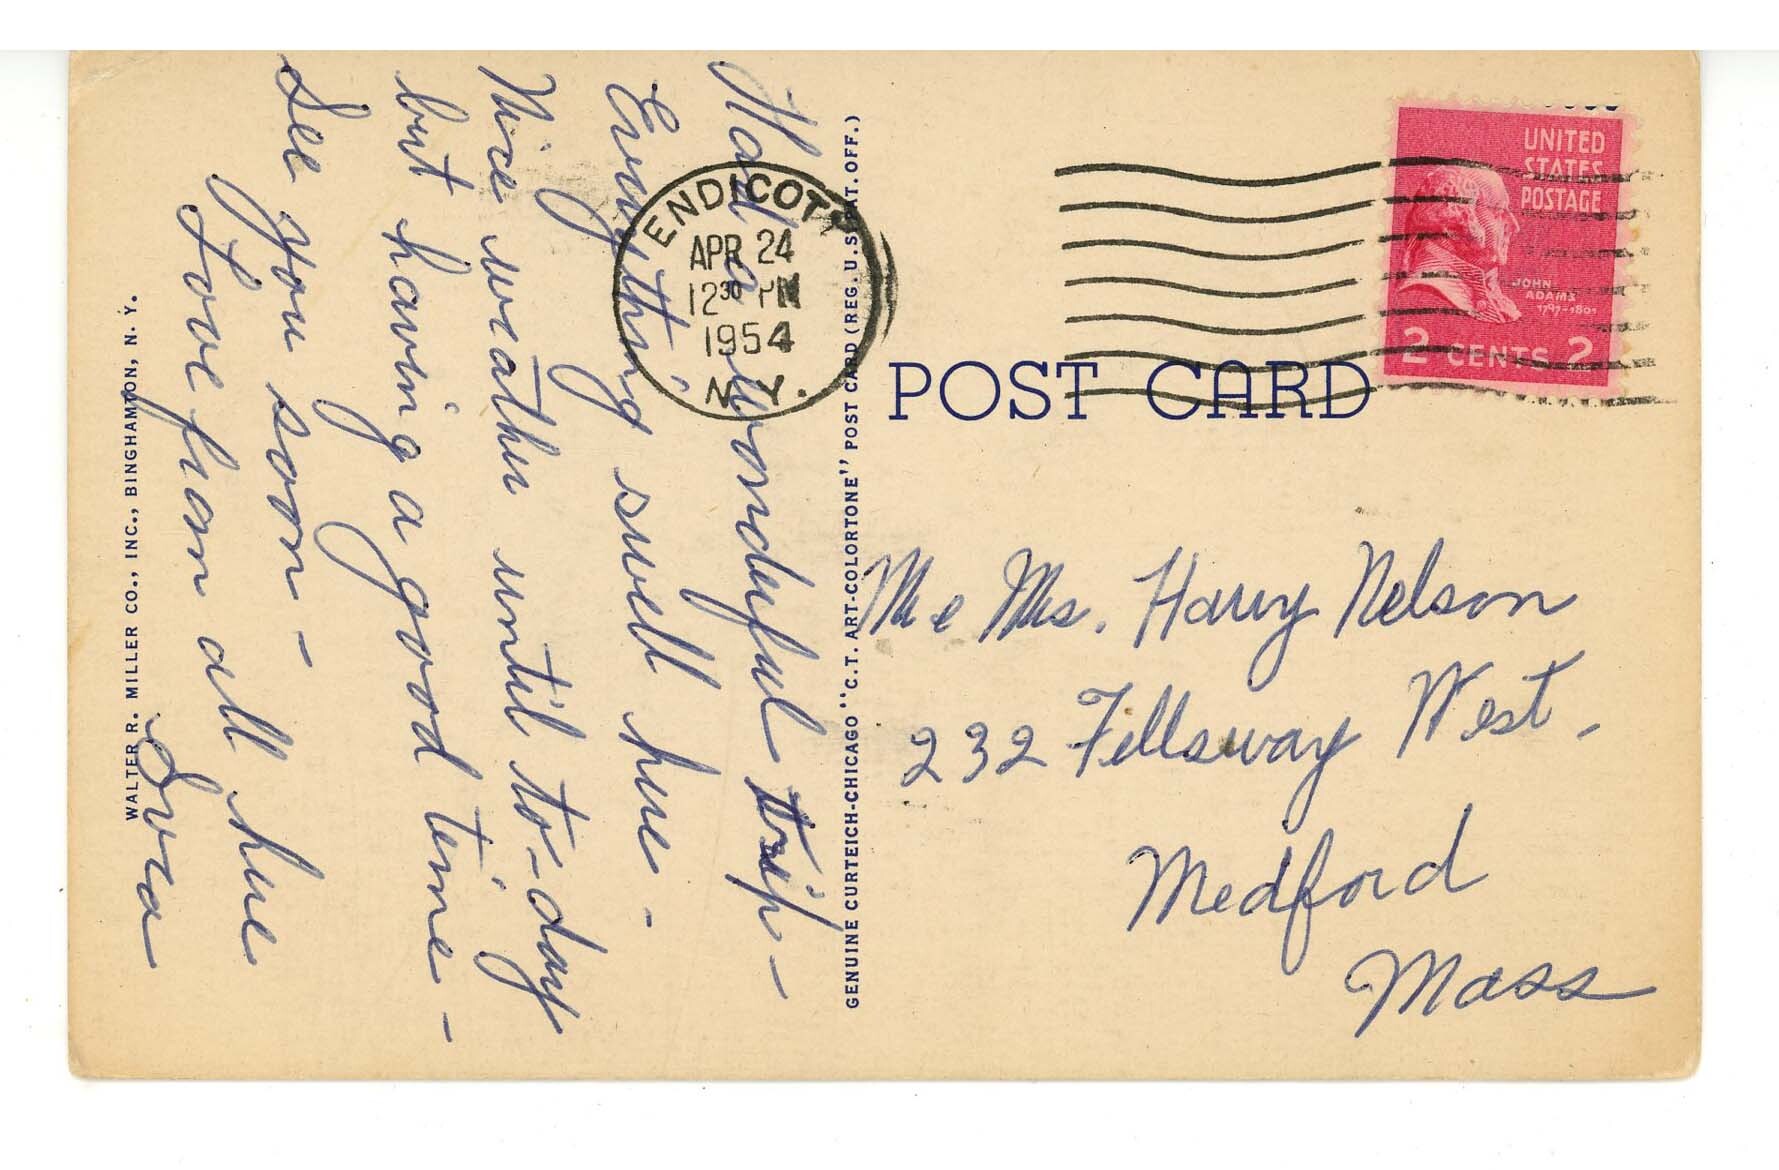 Had a wonderful trip -
Everything swell here -
Nice weather until to-day
but having a good time -
See you soon -
Love from all here
WALTER R. MILLER CO., INC., BINGHAMTON, N. Y.
GENUINE CURTEICH-CHICAGO "C.T. ART-COLORTONE" POST CARD (REG. U.S. PAT. OFF.)
ENDICOTT
APR 24
12 30 PM
1954
N.Y.
UNITED
STATES
POSTAGE
JOHN
ADAMS
1797-1801
2 CENTS 2
POST CARD
Mr & Mrs. Harry Nelson
232 Fellsway West.
Medford
Mass